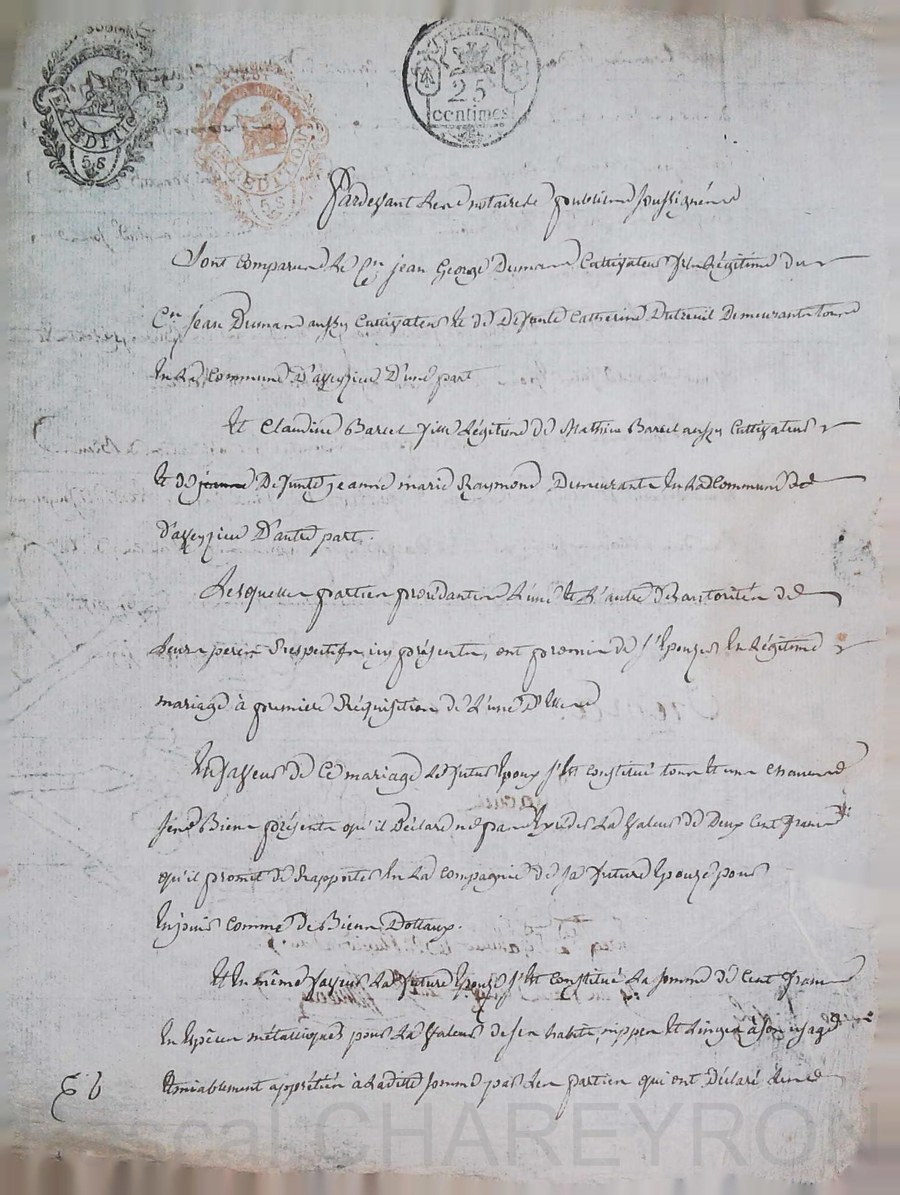 EXPEDITION
5 S
EXPEDITION
5 S
25
centimes
Pardevant les notaires publics soussignés
Sont comparus le Cen jean George Dumand Cultivateur fils légitime du
Cen Jean Dumand aussy Cultivateur et de Défunte Catherine Dutreuil Demeurants tous
en la commune D'asseyzieu D'une part
Et Claudine Barret fille légitime de Mathieu Barret aussy Cultivateur
et de jeanne Défunte jeanne marie Raymond Demeurante en lad Commune de
d'asseyzieu D'autre part.
Lesquelles parties procédantes L'une et L'autre de L'autorités de
Leurs peres Respectifs icy présents, ont promis de s'Epouzer En légitime
mariage à première Réquisition de L'une D'elles
En faveur de Ce mariage Le futur Epoux s'Est constitué tous et uns chacuns
ses Biens présents qu'il Déclare ne pas Exceder La valeur de Deux Cent francs
qu'il promet de Rapporter En La compagnie de sa future Epouze pour
En jouir comme de Biens Dottaux.
Et En même faveur La future Epouze s'Est Constitué La somme de Cent francs
En Espèces métalliques pour La valeur de ses habits, nippes et Linges à son usage
amiablement appréciés à Ladite somme par Les parties qui ont Déclaré
Pascal CHAREYRON